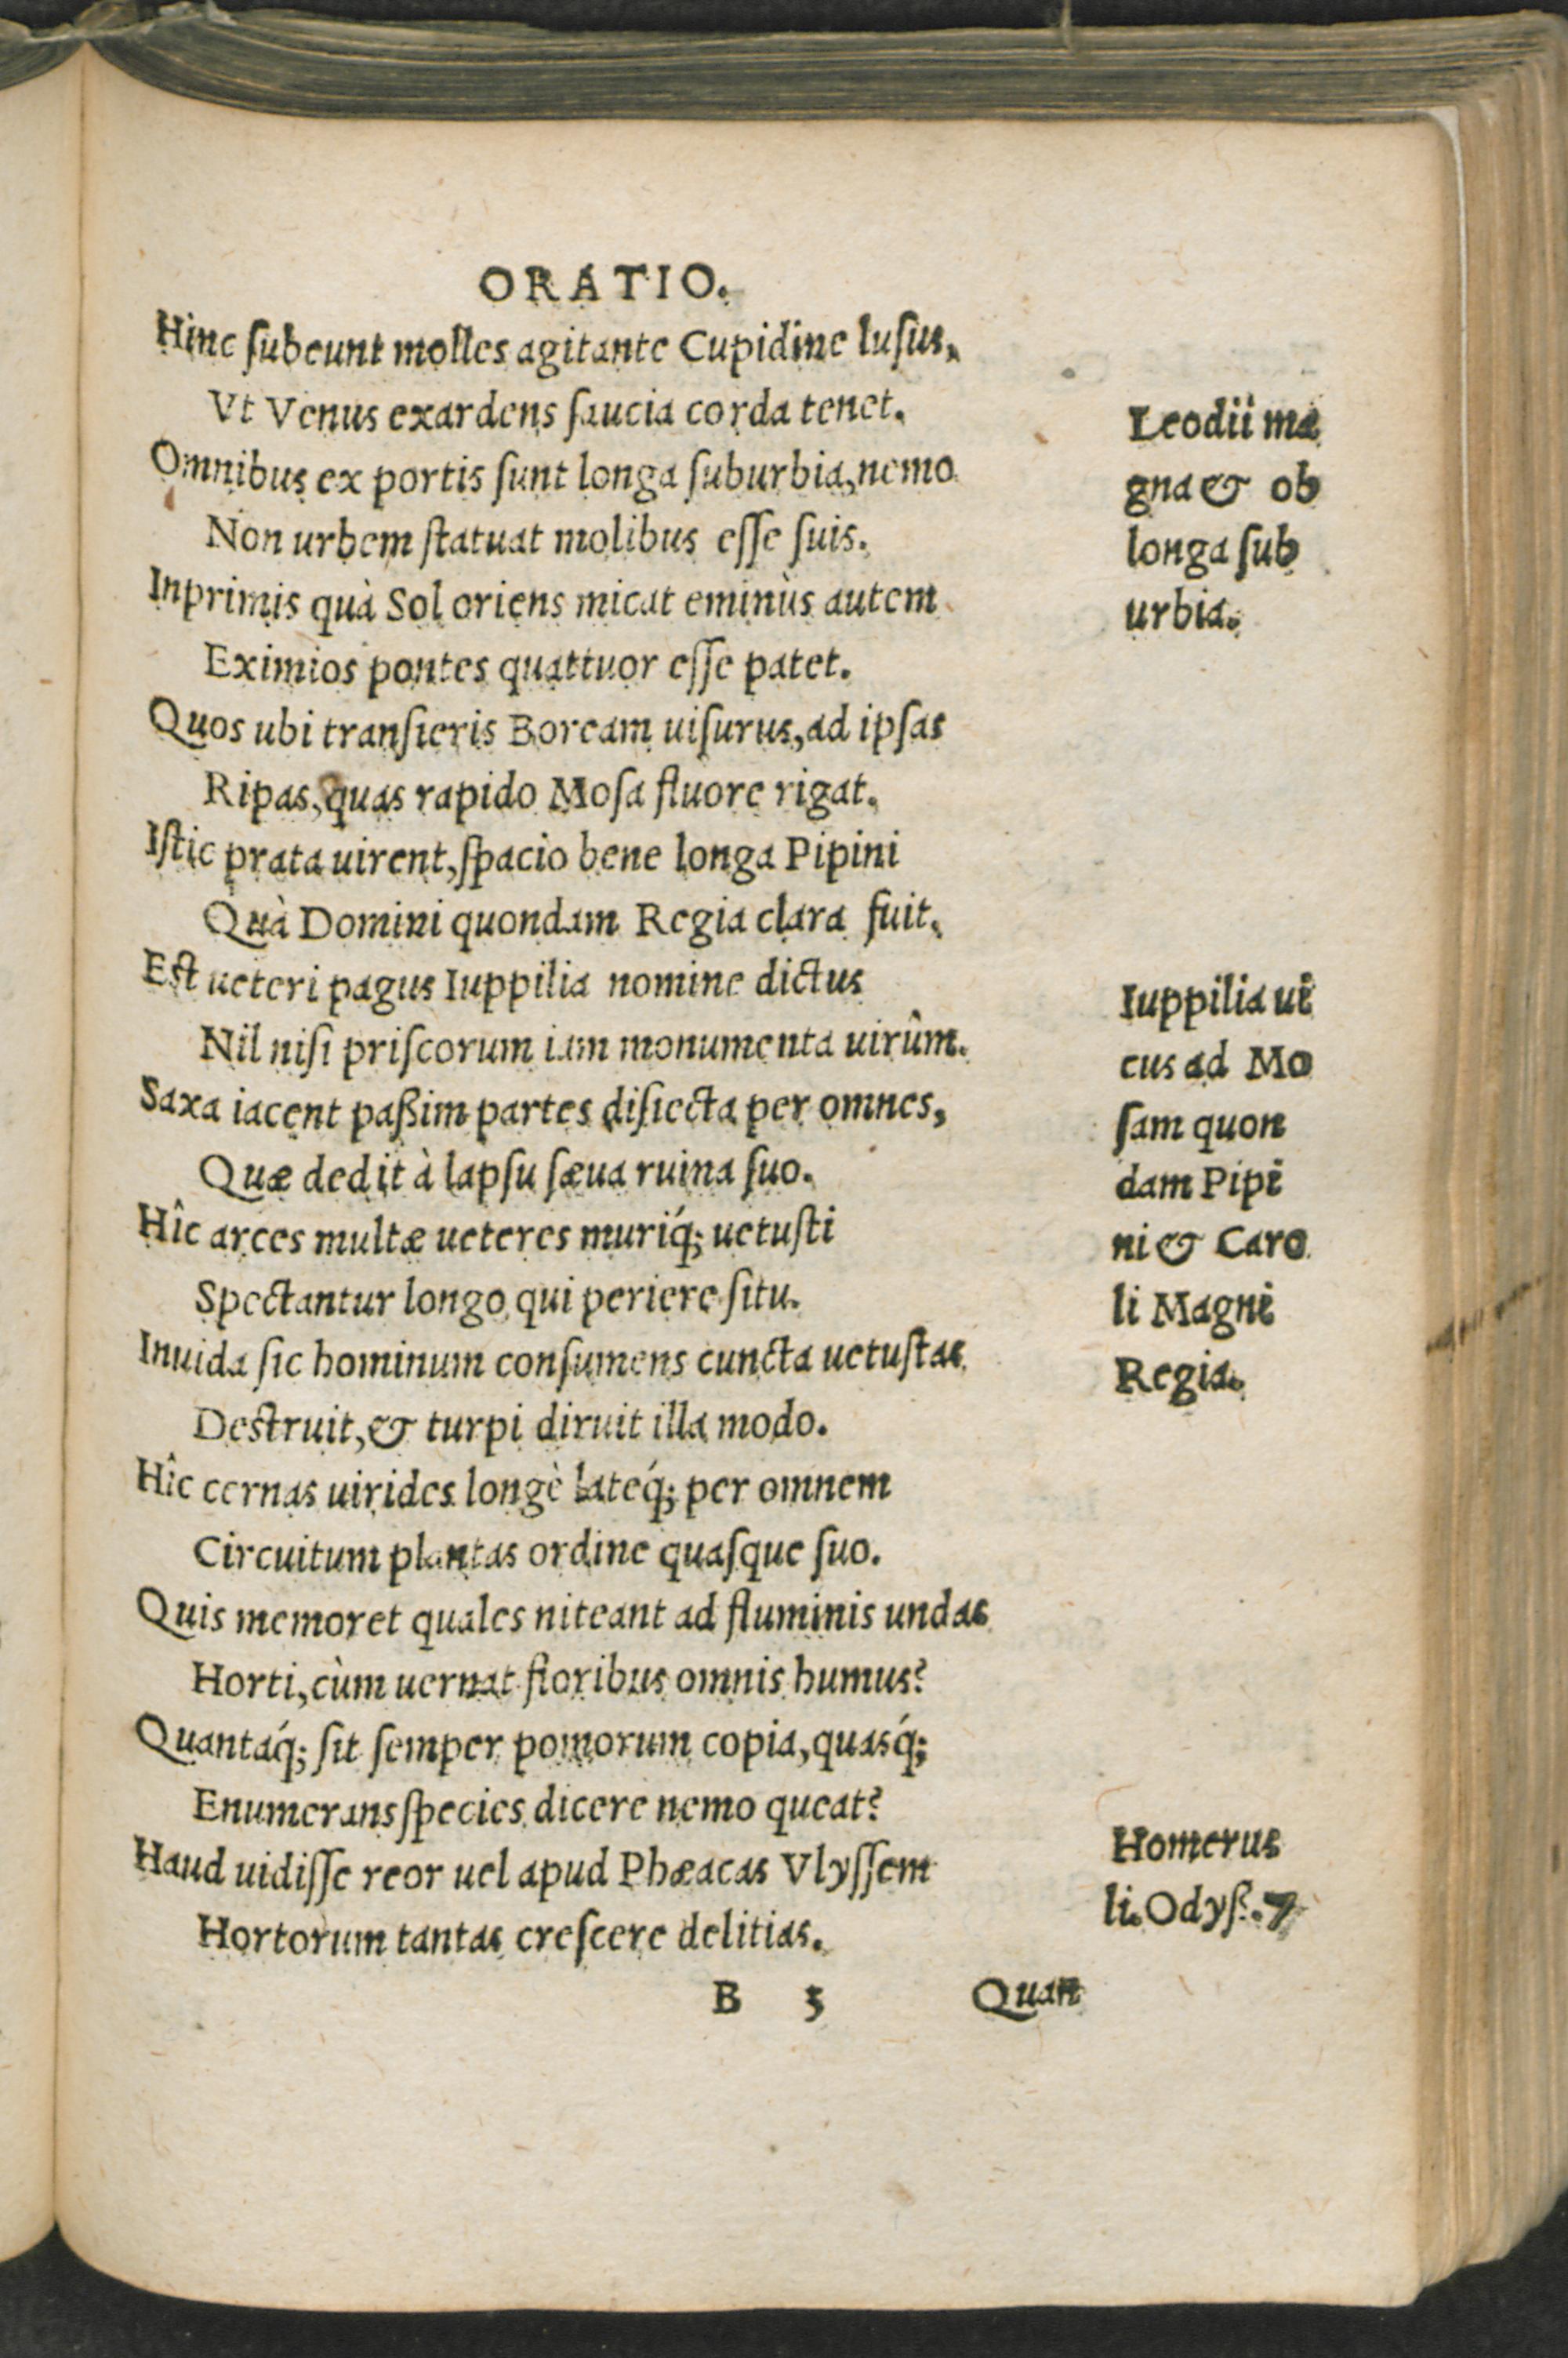 ORATIO.
Hinc ſubeunt molles agitante Cupidine luſus,
Vt Venus exardens ſaucia corda tenet.
Omnibus ex portis ſunt longa ſuburbia, nemo
Non urbem ſtatuat molibus eſſe ſuis.
Inprimis quà Sol oriens micat eminùs autem
Eximios pontes quattuor eſſe patet.
Quos ubi tranſieris Boream uiſurus, ad ipſas
Ripas, quas rapido Moſa fluore rigat.
Iſtic prata uirent, ſpacio bene longa Pipini
Quà Domini quondam Regia clara fuit.
Eſt ueteri pagus Iuppilia nomine dictus
Nil niſi priſcorum iam monumenta uirûm.
Saxa iacent paßim partes diſiecta per omnes,
Quæ dedit à lapſu ſæua ruina ſuo.
Hîc arces multæ ueteres muriq́; uetuſti
Spectantur longo qui periere ſitu.
Inuida ſic hominum conſumens cuncta uetuſtas
Deſtruit, & turpi diruit illa modo.
Hîc cernas uirides longè lateq́; per omnem
Circuitum plantas ordine quaſque ſuo.
Quis memoret quales niteant ad fluminis undas
Horti, cùm uernat floribus omnis humus?
Quantaq́; ſit ſemper pomorum copia, quasq́;
Enumerans ſpecies dicere nemo queat?
Haud uidiſſe reor uel apud Phæacas Vlyſſem
Hortorum tantas creſcere delitias.
B 3 Quan
Leodii ma
gna & ob
longa ſub
urbia.
Iuppilia ui
cus ad Mo
ſam quon
dam Pipi
ni & Caro
li Magni
Regia.
Homerus
li. Odyſ. 7